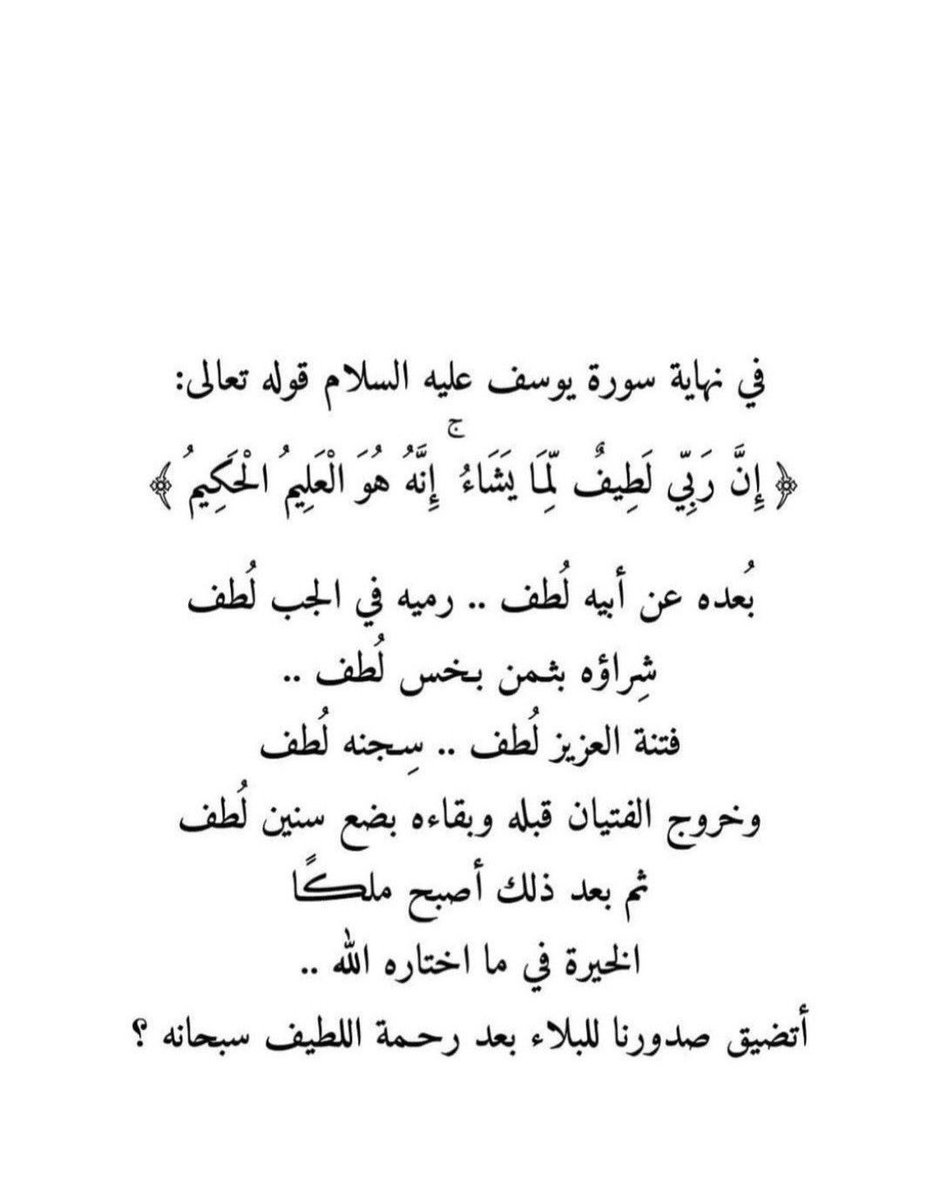 في نهاية سورة يوسف عليه السلام قوله تعالى:
﴿ إِنَّ رَبِّي لَطِيفٌ لِّمَا يَشَاءُ ۚ إِنَّهُ هُوَ الْعَلِيمُ الْحَكِيمُ ﴾
بُعده عن أبيه لُطف .. رميه في الجب لُطف
شِراؤه بثمن بخس لُطف ..
فتنة العزيز لُطف .. سِجنه لُطف
وخروج الفتيان قبله وبقاءه بضع سنين لُطف
ثم بعد ذلك أصبح ملكًا
الخيرة في ما اختاره الله ..
أتضيق صدورنا للبلاء بعد رحمة اللطيف سبحانه ؟